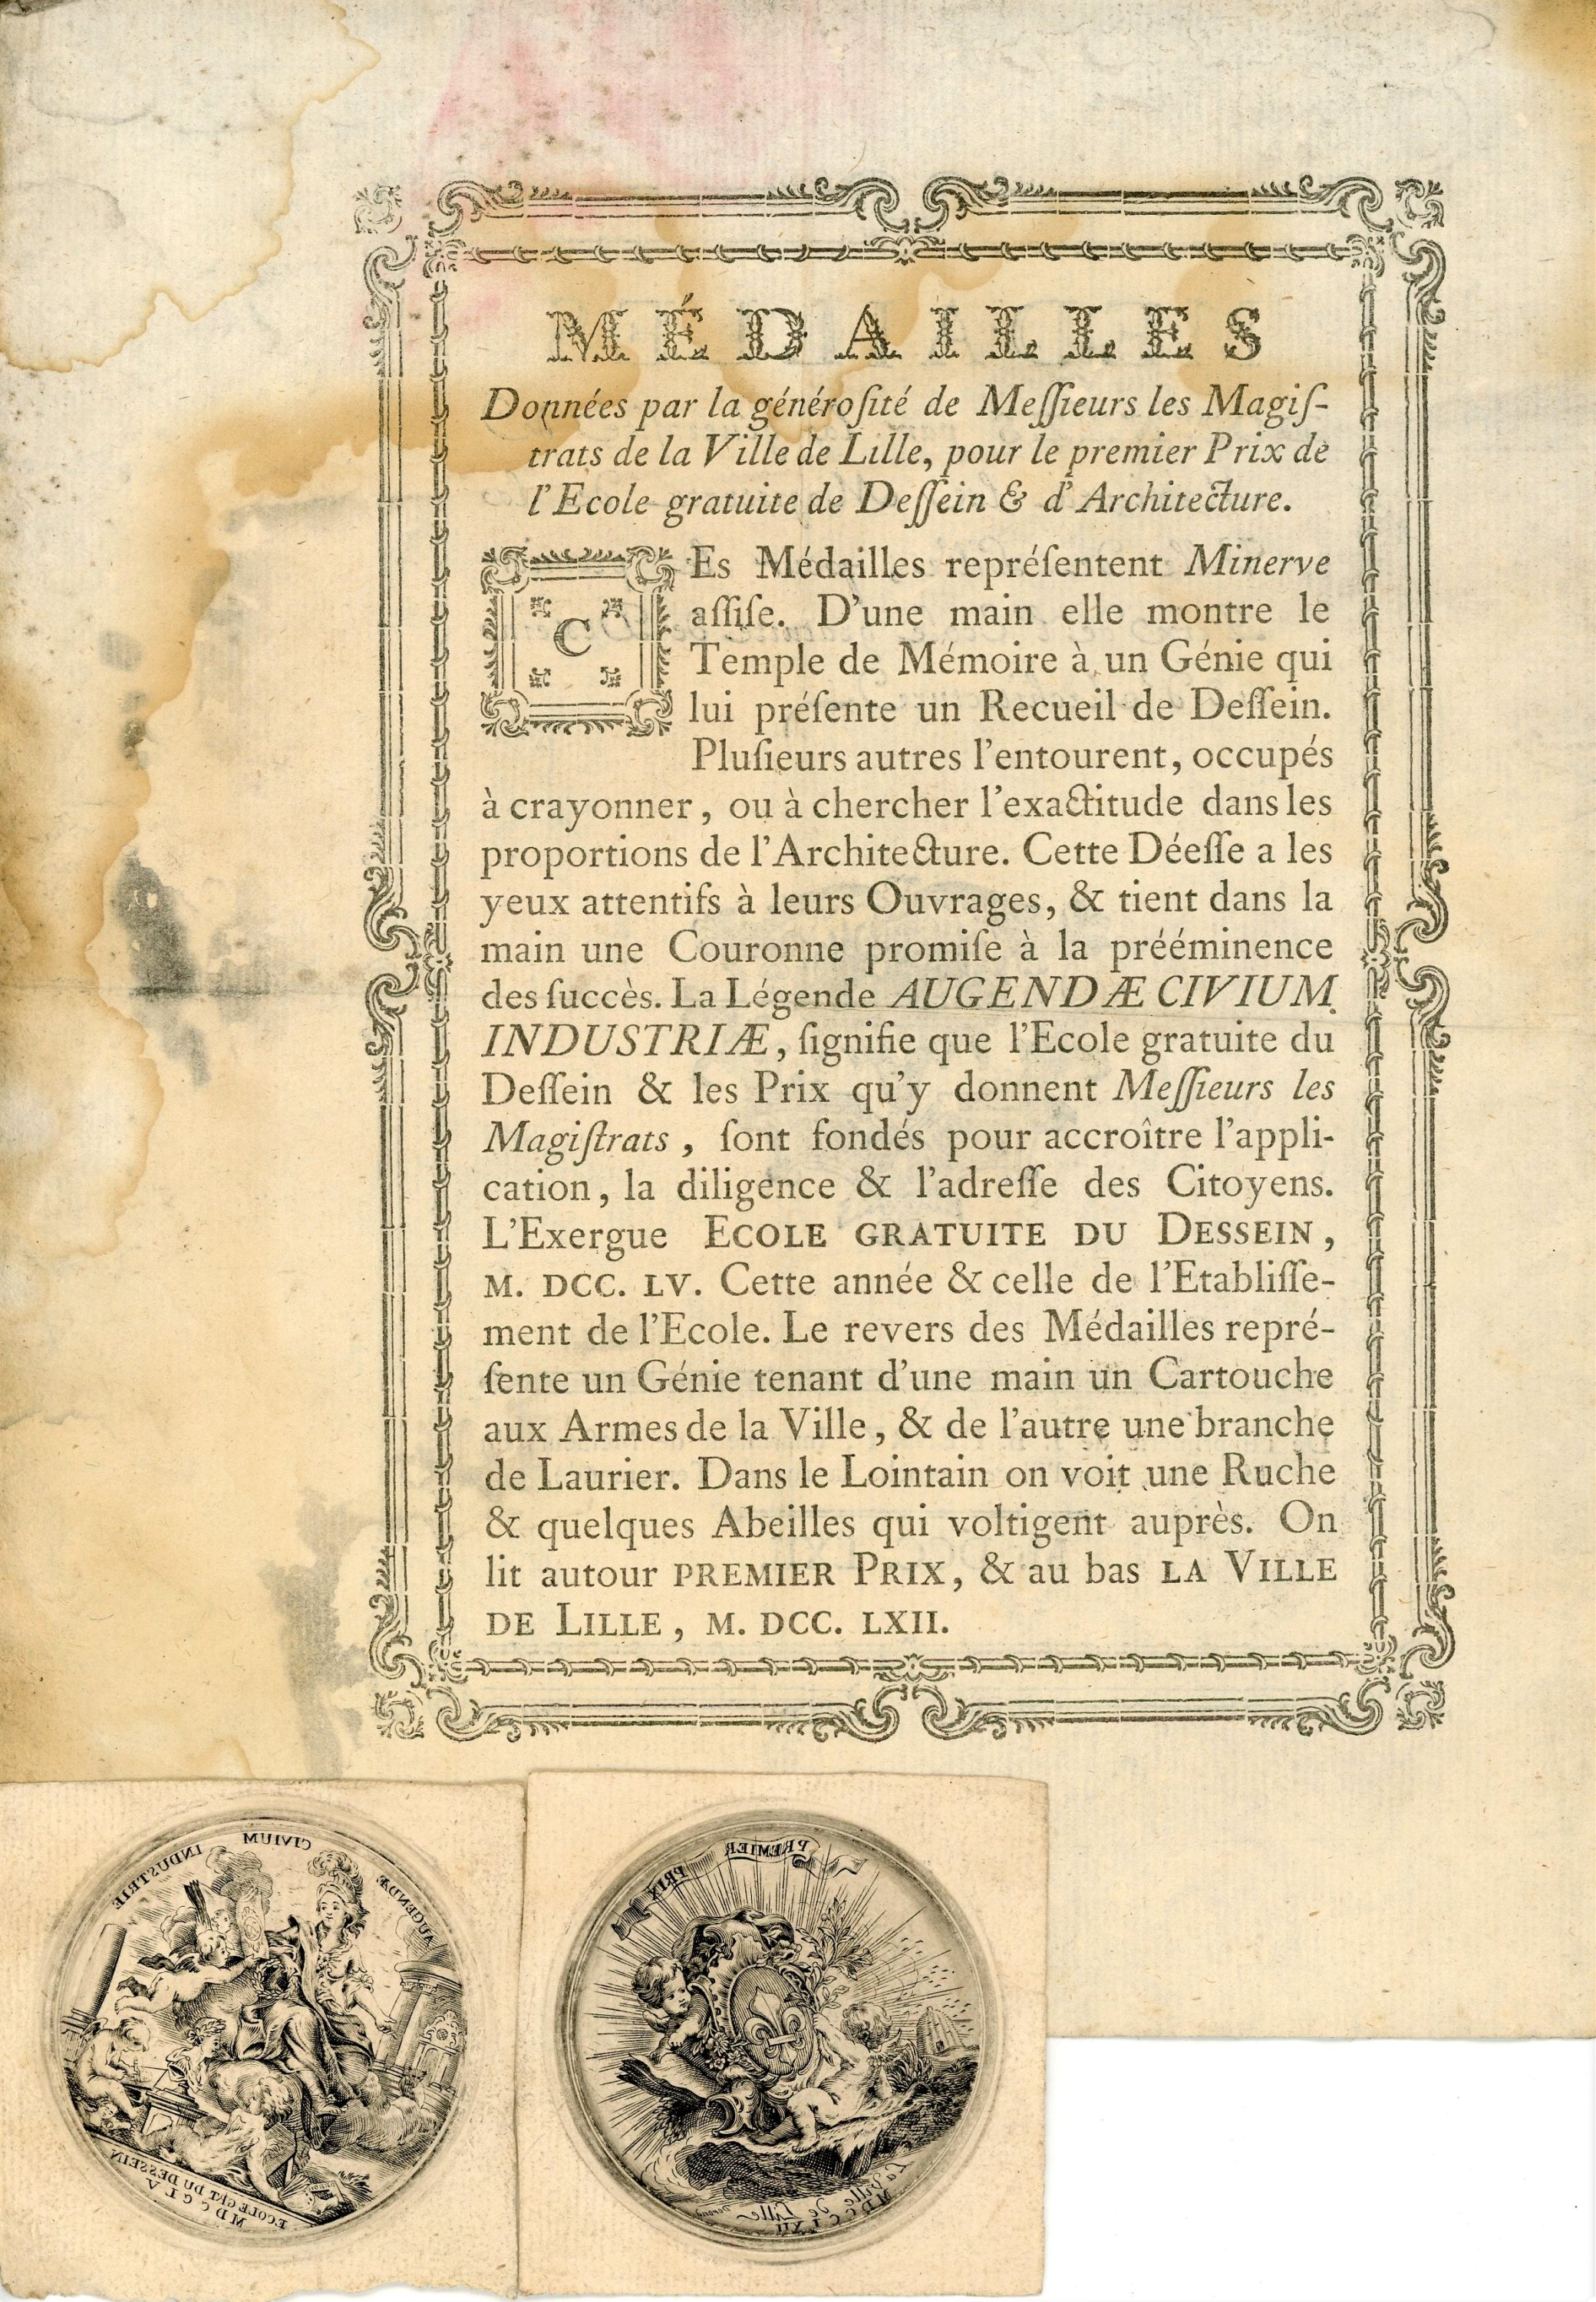 MÉDAILLES
Données par la généroſité de Meſſieurs les Magiſ-
trats de la Ville de Lille, pour le premier Prix de
l'Ecole gratuite de Deſſein & d'Architecture.
CEs Médailles repréſentent Minerve
aſſiſe. D'une main elle montre le
Temple de Mémoire à un Génie qui
lui préſente un Recueil de Deſſein.
Pluſieurs autres l'entourent, occupés
à crayonner, ou à chercher l'exactitude dans les
proportions de l'Architecture. Cette Déeſſe a les
yeux attentifs à leurs Ouvrages, & tient dans la
main une Couronne promiſe à la prééminence
des ſuccès. La Légende AUGENDÆ CIVIUM
INDUSTRIÆ, ſignifie que l'Ecole gratuite du
Deſſein & les Prix qu'y donnent Meſſieurs les
Magiſtrats, ſont fondés pour accroître l'appli-
cation, la diligence & l'adreſſe des Citoyens.
L'Exergue ECOLE GRATUITE DU DESSEIN,
M. DCC. LV. Cette année & celle de l'Etabliſſe-
ment de l'Ecole. Le revers des Médailles repré-
ſente un Génie tenant d'une main un Cartouche
aux Armes de la Ville, & de l'autre une branche
de Laurier. Dans le Lointain on voit une Ruche
& quelques Abeilles qui voltigent auprès. On
lit autour PREMIER PRIX, & au bas LA VILLE
DE LILLE, M. DCC. LXII.
AUGENDÆ CIVIUM INDUSTRIE
ECOLE GRAT DU DESSEIN
MDCCLV
PREMIER PRIX
La Ville de Lille
MDCCLXII